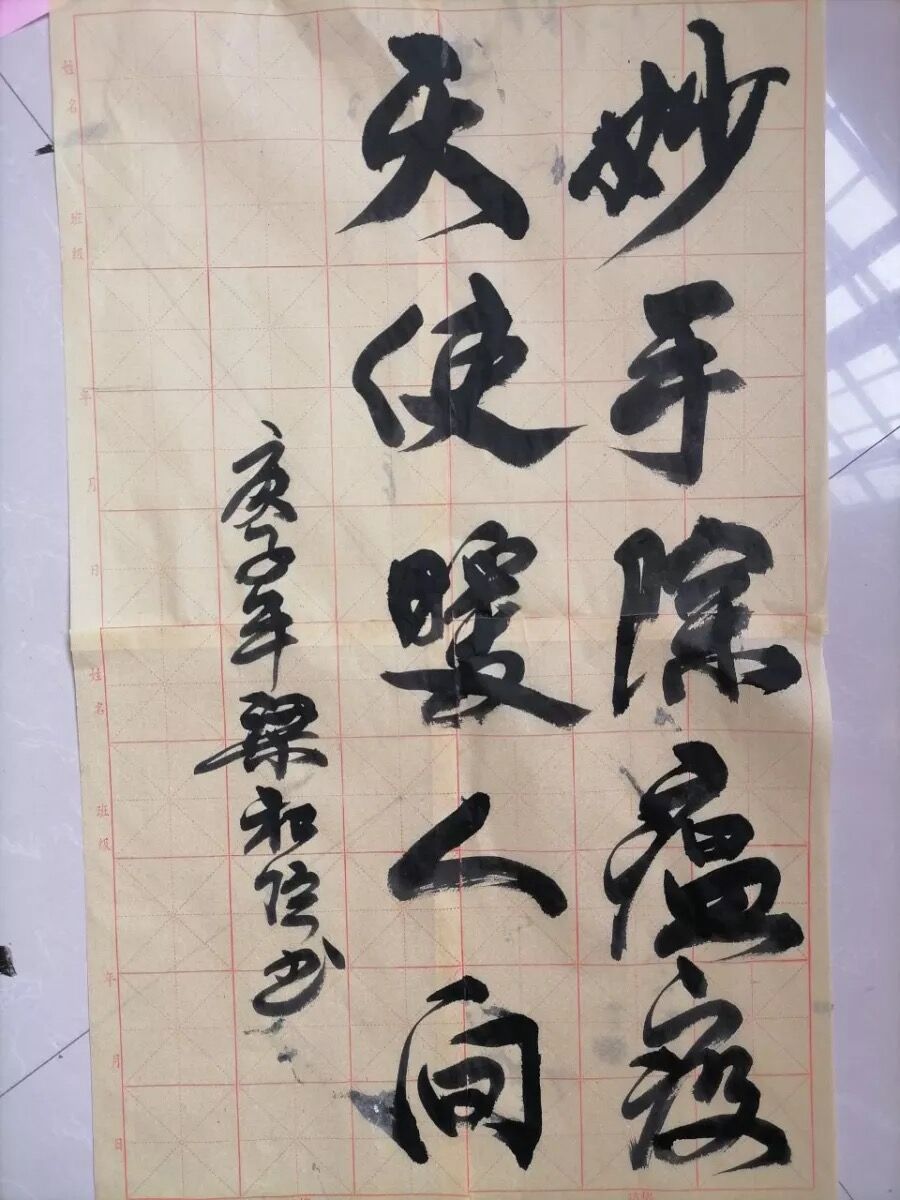 妙手除瘟疫
天使暖人间
庚子年梁和信书
姓名
班级
年
月
日
姓名
班级
年
月
日